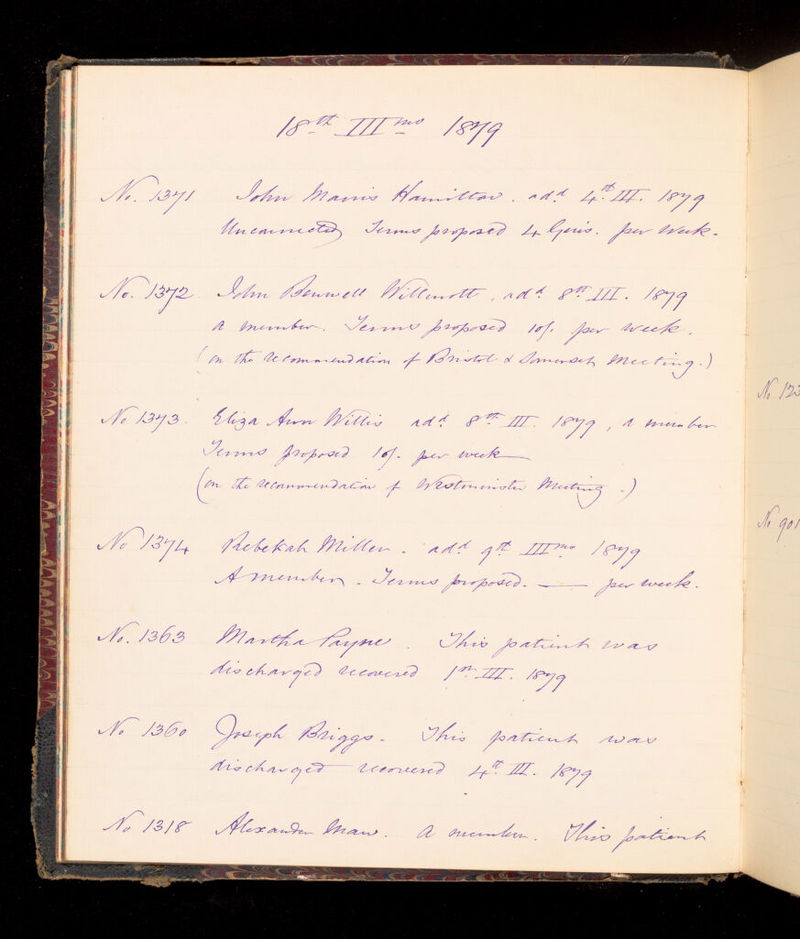 18th III mo 1879
No. 1371 John Morris Hamilton. add 4th III. 1879
Unconnected Terms proposed 4 Guis. per week.
No. 1372 John Benwell Willmott, add 8th III. 1879
a member. Terms proposed 10/. per week.
(on the recommendation of Bristol & Somerset Meeting.)
No 1373. Eliza Ann Willis add 8th III. 1879, a member
Terms proposed 10/. per week
(on the recommendation of Westminster Meeting.)
No 1374 Rebekah Miller. add 9th III mo 1879
A member. Terms proposed. — per week.
No. 1363 Martha Payne. This patient was
discharged recovered 1st III. 1879
No 1360 Joseph Briggs. This patient was
discharged recovered 4th III. 1879
No 1318 Alexander Maw. A member. This patient
No 123
No 901